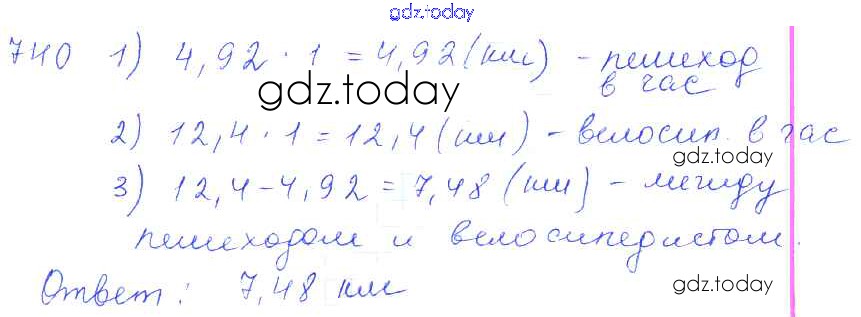 gdz.today
740 1) 4,92 · 1 = 4,92 (км) - пешеход
в час
gdz.today
2) 12,4 · 1 = 12,4 (км) - велосип. в час
gdz.today
3) 12,4 - 4,92 = 7,48 (км) - между
пешеходом и велосипедистом.
Ответ: 7,48 км
gdz.today